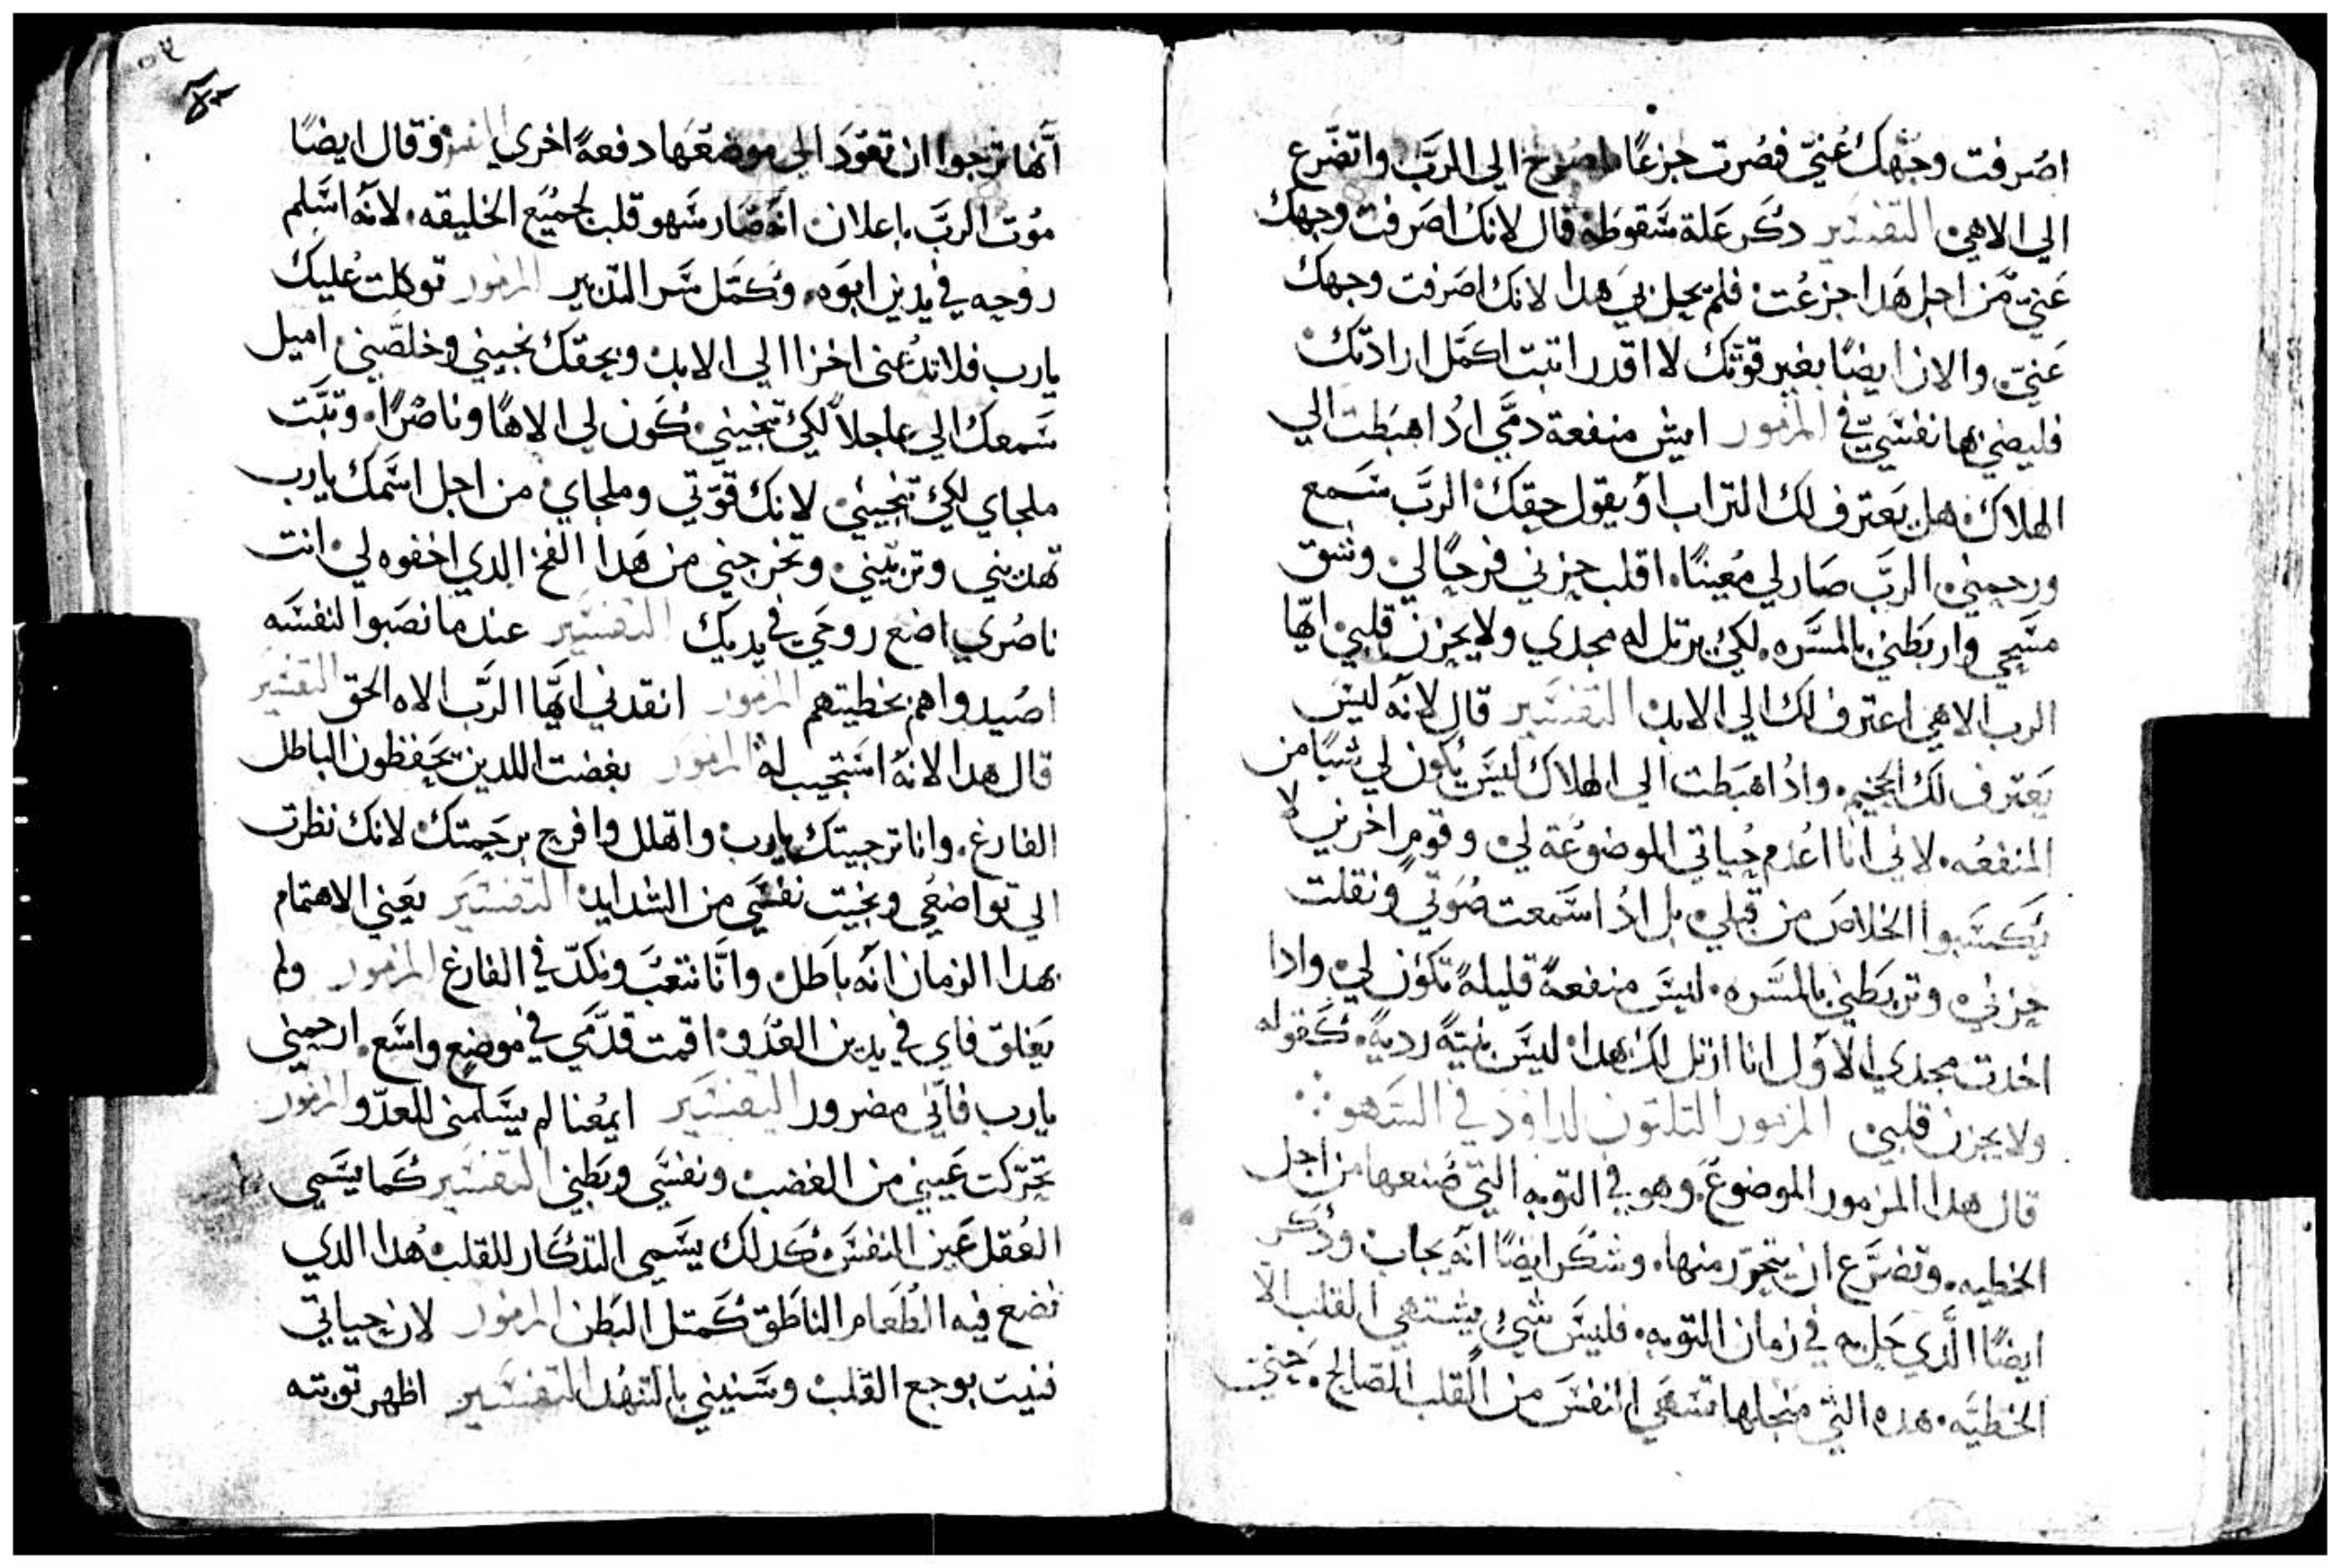 اصرفت وجهك عني فصرت جزعًا اصرخ الي الرب واتضرع
الي الاهي التفسير دكر علة سقوطه قال لانك اصرفت وجهك
عني من اجل هدا جزعت فلم يحل بي هدا لانك اصرفت وجهك
عني والان ايضًا بغير قوتك لا اقدر اتبت اكمل ارادتك
فليضي بها نفسي في المزمور ايش منفعة دمي اد اهبطت الي
الهلاك هل يعترف لك التراب او يقول حقك الرب سمع
ورحمني الرب صار لي معينًا اقلب حزني فرحًا لي وشق
مسحي واربطني بالمسره لكي يرتل له مجدي ولا يحزن قلبي ايها
الرب الاهي اعترف لك الي الابد التفسير قال لانه ليس
يعترف لك الجحيم واد اهبطت الي الهلاك ليس يكون لي شيًا من
المنفعه لاني انا اعدم حياتي الموضوعة لي وقوم اخرين لا
يكسبوا الخلاص من قبلي بل اد استمعت صوتي ونقلت
حزني وتربطني بالمسره ليس منفعة قليلة تكون لي وادا
اخدت مجدي الاول انا ارتل لك هدا ليس بنية ردية كقوله
ولا يحزن قلبي المزمور التلتون لداوود في السهو
قال هدا المزمور الموضوع وهو في التوبه التي صنعها من اجل
الخطيه وتضرع ان يتحرر منها وشكر ايضًا انه يجاب ودكر
ايضًا الدي حل به في زمان التوبه فليس شي يشتهي القلب الا
الخطيه هده التي منجلها تسهي النفس من القلب الصالح حتي
انها ترجوا ان تعود الي موضعها دفعة اخري وقال ايضًا
موت الرب باعلان انه صار سهو قلب لجميع الخليقه لانه اسلم
روحه في يدين ابوه وكمل سر التدبير المزمور توكلت عليك
يارب فلا تدعني اخزا الي الابد وبحقك نجيني وخلصني اميل
سمعك الي عاجلاً لكي تنجيني كون لي الاهًا وناصرًا وتبت
ملجاي لكي تنجيني لانك قوتي وملجاي من اجل اسمك يارب
تهديني وتربيني وتخرجني من هدا الفخ الدي اخفوه لي انت
ناصري اضع روحي في يديك التفسير عندما نصبوا لنفسه
اصيدوا هم بخطيتهم المزمور انقدني ايها الرب الاه الحق التفسير
قال هدا لانه استجيب له المزمور بغضت اللدين يحفظون الباطل
الفارغ وانا ترجيتك يارب واتهلل وافرح برحمتك لانك نظرت
الي تواضعي ونجيت نفسي من الشدايد التفسير يعني الاهتمام
بهدا الزمان انه باطل وانا نتعب ونكد في الفارغ المزمور ولم
يغلق فاي في يدين العدو اقمت قدمي في موضع واسع ارحمني
يارب فاني مضرور التفسير ايمعنا لم يسلمني للعدو المزمور
تحركت عيني من الغضب ونفسي وبطني التفسير كما يسمي
العقل عين النفس كدلك يسمي التدكار للقلب هدا الدي
نضع فيه الطعام الناطق كمتل البطن المزمور لان حياتي
فنيت بوجع القلب وسنيني بالتنهد التفسير اظهر توبته